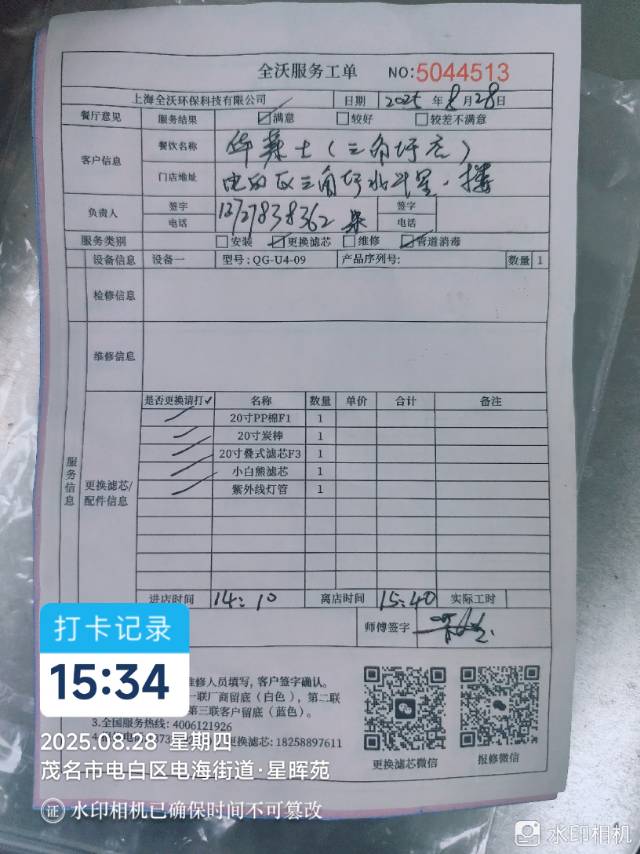 全沃服务工单 NO:5044513
上海全沃环保科技有限公司 日期 2025 年 8 月 28 日
餐厅意见 服务结果 ☑满意 □较好 □较差不满意
客户信息 餐饮名称 华莱士(三角圩店)
门店地址 电白区三角圩北斗星·
负责人 签字 签字
电话 电话
服务类别 □安装 ☑更换滤芯 □维修 ☑管道消毒
设备信息 设备一 型号: QG-U4-09 产品序列号: 数量 1
检修信息
维修信息
服务信息
更换滤芯/配件信息
是否更换请打✓ 名称 数量 单价 合计 备注
20寸PP棉F1 1
20寸炭棒 1
20寸叠式滤芯F3 1
小白熊滤芯 1
紫外线灯管 1
进店时间 14:10 离店时间 15:40 实际工时
师傅签字
维修人员填写,客户签字确认。
一联厂商留底(白色),第二联
第三联客户留底(蓝色)。
3.全国服务热线: 4006121926
更换滤芯: 18258897611
更换滤芯微信 报修微信
打卡记录
15:34
2025.08.28 星期四
茂名市电白区电海街道·星晖苑
证 水印相机已确保时间不可篡改
水印相机